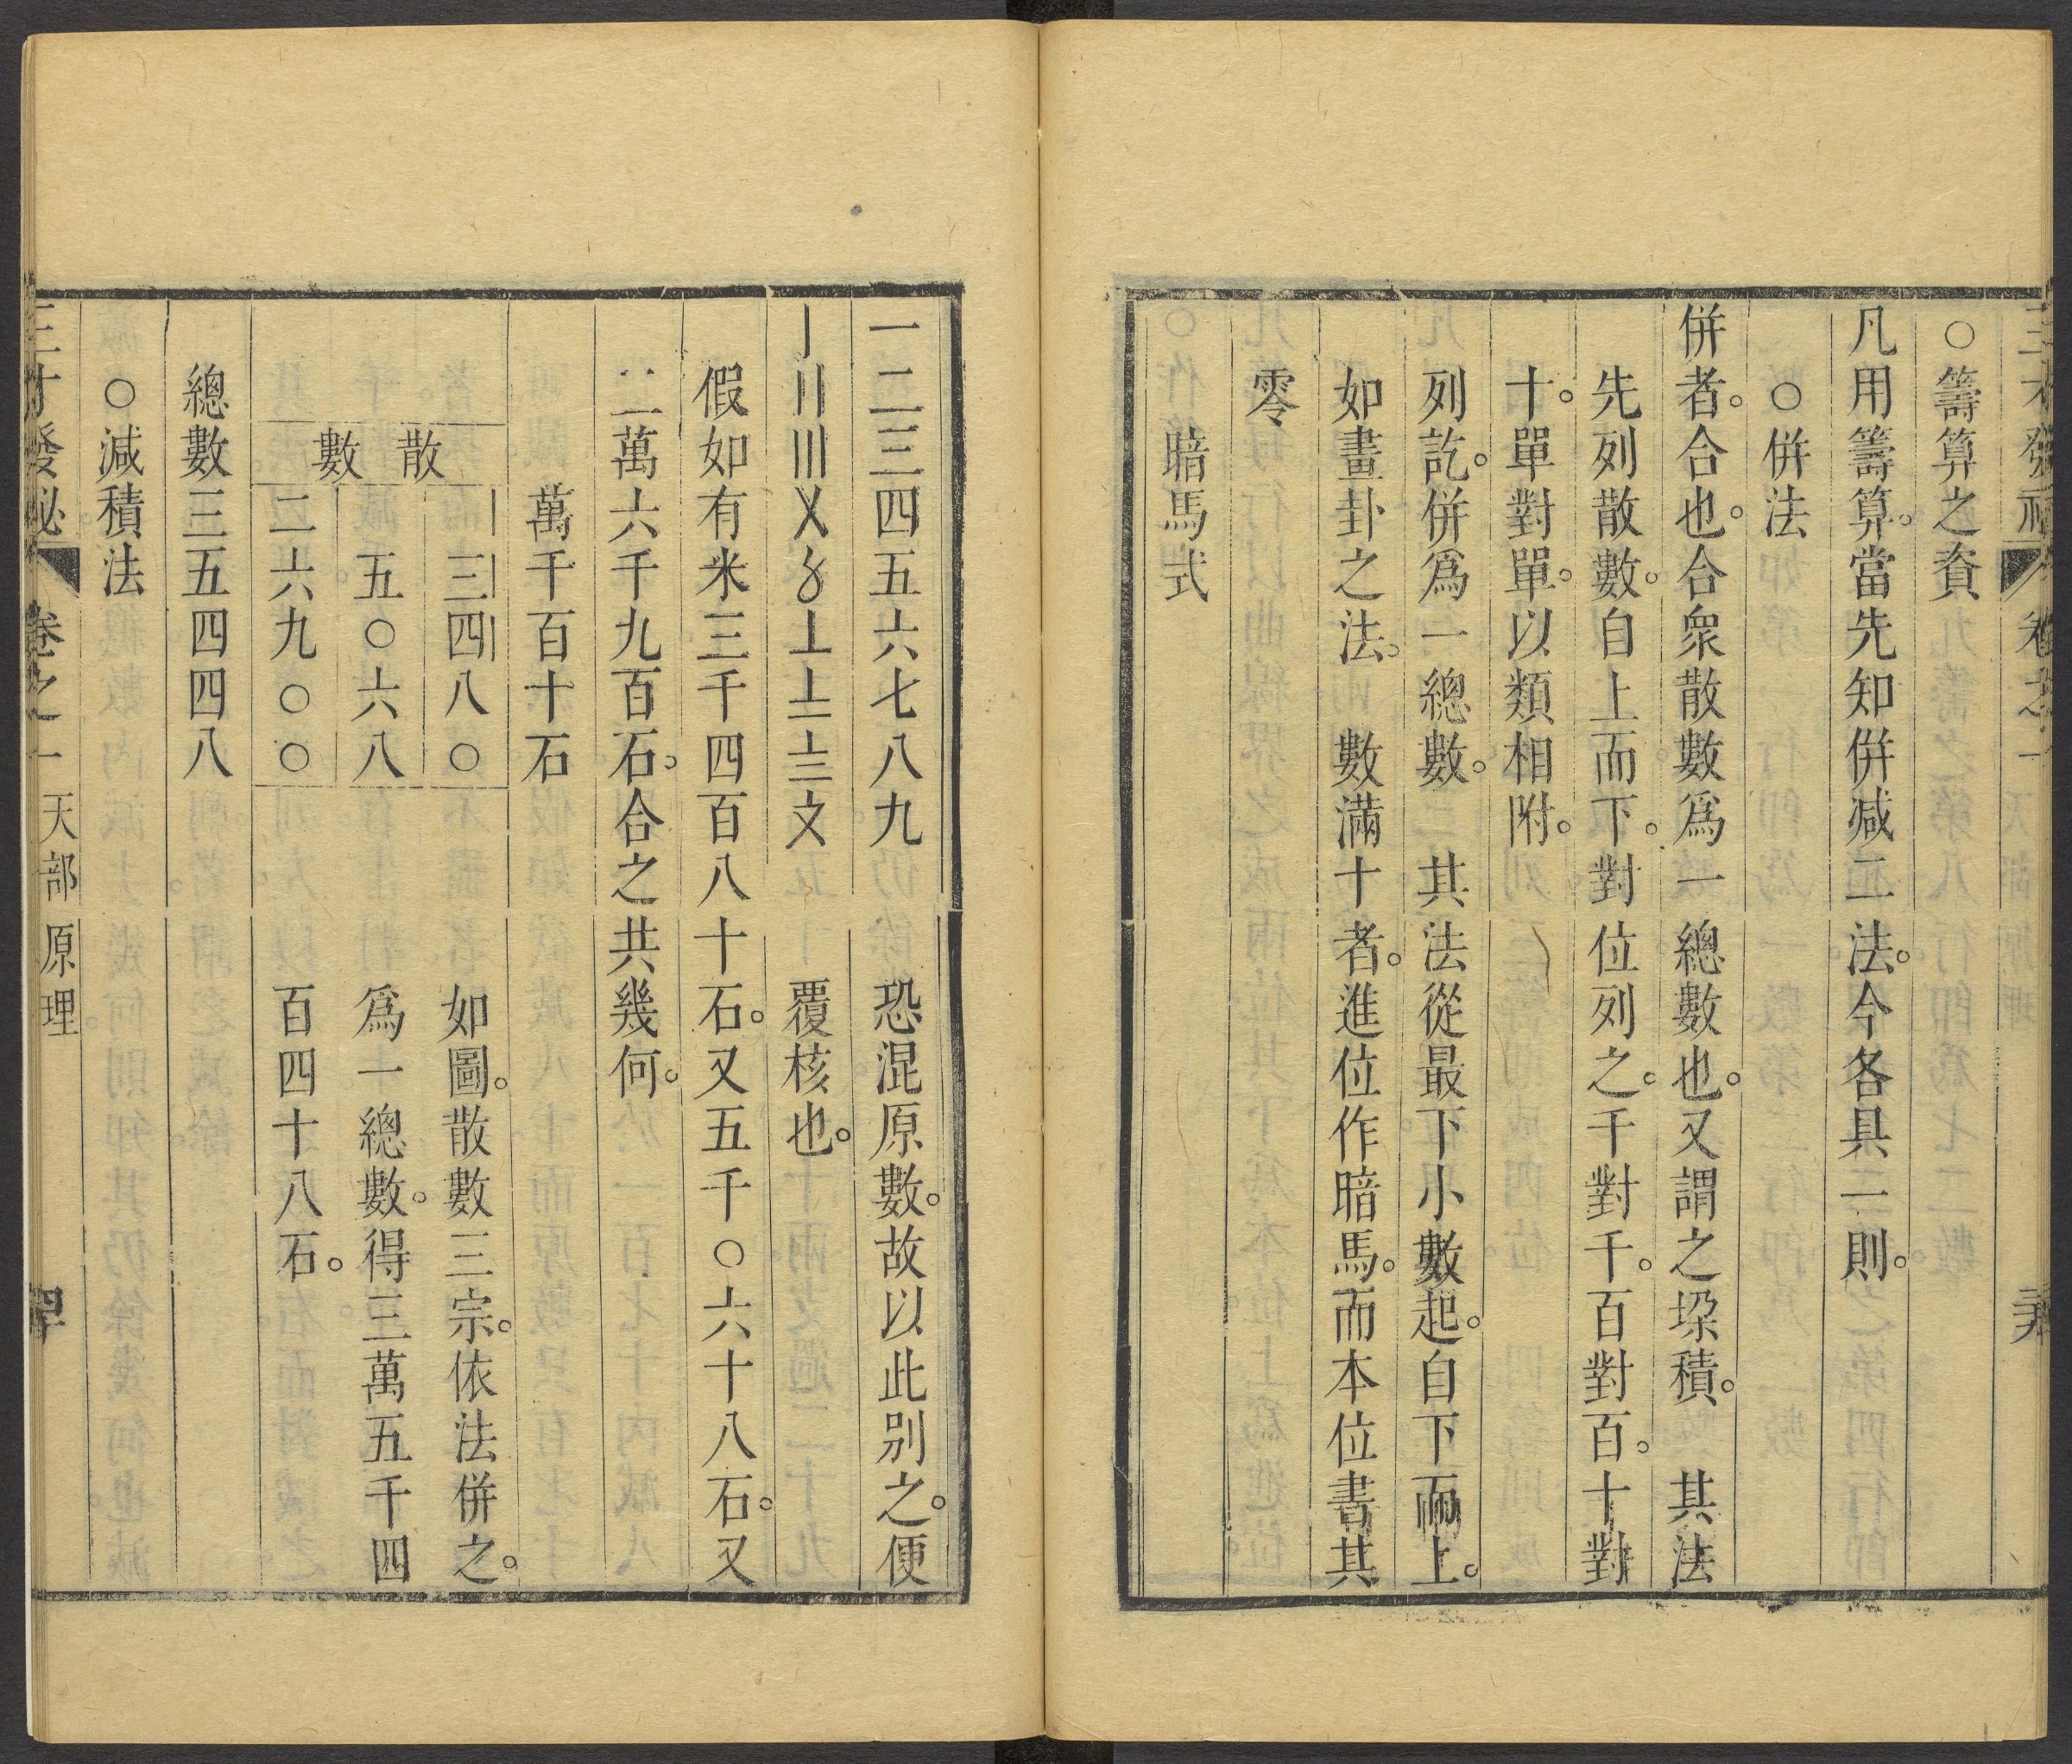 三才發祕 卷之一 天部 原理
○籌算之資
凡用籌算。當先知併减二法。今各具一則。
○併法
併者。合也。合衆散數爲一總數也。又謂之垜積。 其法
先列散數。自上而下。對位列之。千對千。百對百。十對
十。單對單。以類相附。
列訖。併爲一總數。 其法從最下小數起。自下而上。
如畫卦之法。 數滿十者。進位作暗馬。而本位書其
零
暗馬式
一二三四五六七八九 恐混原數。故以此别之。便
〡〢〣〤〥〦〧〨〩 覆核也。
假如有米三千四百八十石。又五千○六十八石。又
二萬六千九百石。合之共幾何。
萬千百十石
散數
三四八○ 如圖。散數三宗。依法併之。
五○六八 爲一總數。得三萬五千四
二六九○○ 百四十八石。
總數三五四四八
○減積法
三才發祕 卷之一 天部 原理